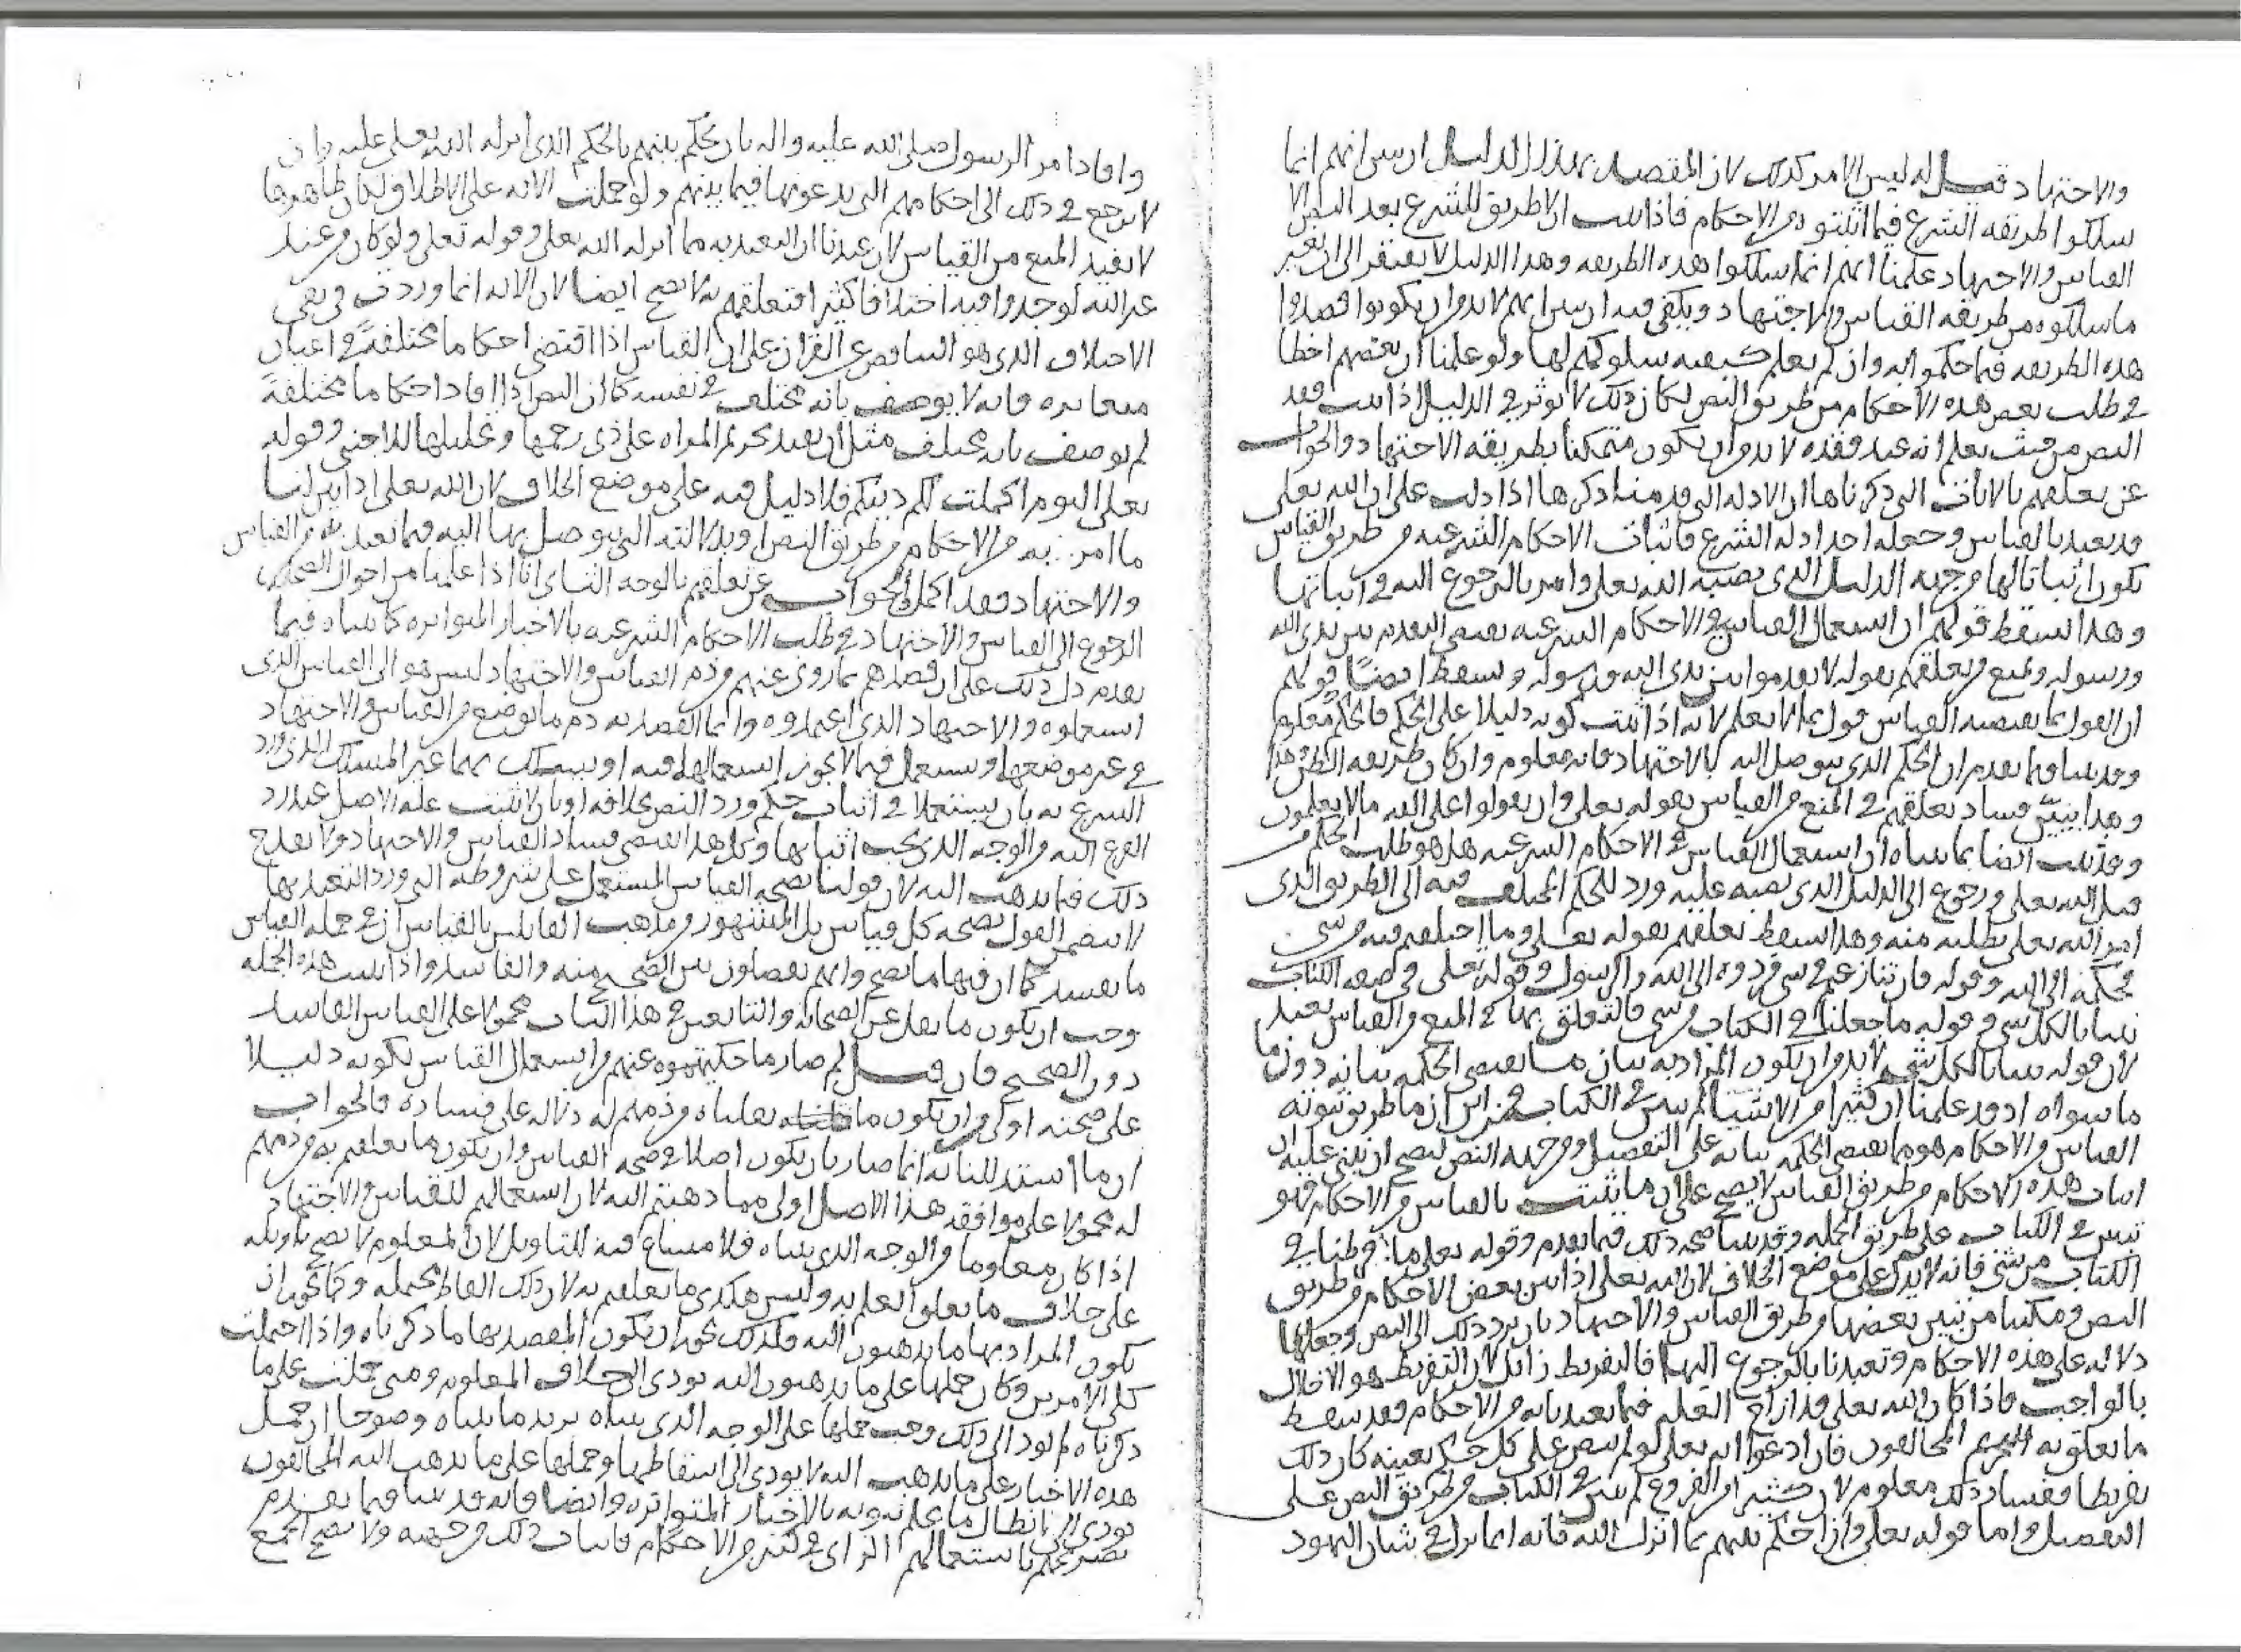 والاجتهاد قيل له ليس الامر كذلك لان المقصد بهذا الدليل ان يبين انهم انما
سلكوا طريقه الشرع فيما اثبتوه من الاحكام فاذا ثبت ان لا طريق للشرع بعد النص الا
القياس والاجتهاد علمنا انهم انما سلكوا هذه الطريقه وهذا الدليل لا يفتقر الى ان يعتبر
ما سلكوه من طريقه القياس والاجتهاد ويكفي فيه ان يبين انهم لا بد من ان يكونوا قصدوا
هذه الطريقه فيما حكموا به وان لم يعلم كيفيه سلوكهم لها ولو علمنا ان بعضهم اخطا
في طلب بعض هذه الاحكام من طريق النص لكان ذلك لا يوثر في الدليل اذا ثبت فقد
النص من حيث يعلم انه عند فقده لا بد من ان يكون متمكنا بطريقه الاجتهاد والجواب
عن تعلقهم بالايات التي ذكرناها ان الادله التي قدمنا ذكرها اذا دلت على ان الله تعلى
قد تعبد بالقياس وجعله احد ادله الشرع فاثبات الاحكام الشرعيه من طريق القياس
يكون اثباتا لها من جهه الدليل الذي نصبه الله تعلى وامر بالرجوع اليه في اثباتها
وهذا يسقط قولهم ان استعمال القياس في الاحكام الشرعيه يقتضي التقدم بين يدي الله
ورسوله ويمنع من تعلقهم بقوله لا تقدموا بين يدي الله ورسوله ويسقط ايضا قولهم
ان القول بما يقتضيه القياس قول بما لا يعلم لانه اذا ثبت كونه دليلا على الحكم فالحكم معلوم
وقد بينا فيما تقدم ان الحكم الذي يتوصل اليه بالاجتهاد فانه معلوم وان كان طريقه الظن هذا
وهذا يبين فساد تعلقهم في المنع من القياس بقوله تعلى وان تقولوا على الله ما لا تعلمون
وقد ثبت ايضا بما بيناه ان استعمال القياس في الاحكام الشرعيه هو طلب الحكم من
قبل الله تعلى ورجوع الى الدليل الذي نصبه عليه ورد للحكم المختلف فيه الى الطريق الذي
امر الله تعلى بطلبه منه وهذا يسقط تعلقهم بقوله تعلى وما اختلفتم فيه من شي
فحكمه الى الله وقوله فان تنازعتم في شي فردوه الى الله والرسول وقوله تعلى في صفه الكتاب
تبيانا لكل شي وقوله ما فرطنا في الكتاب من شي فالتعلق بها في المنع من القياس بعيد
لان قوله تبيانا لكل شي لا بد من ان يكون المراد به بيان ما تقتضي الحكمه بيانه دون ما
ما سواه اذ قد علمنا ان كثيرا من الاشيا لم يبين في الكتاب فمن اين ان ما طريق ثبوته
القياس من الاحكام هو مما تقتضي الحكمه بيانه على التفصيل ومن جهه النص ليصح ان يبنى عليه ان
اثبات هذه الاحكام من طريق القياس لا يصح على ان ما يثبت بالقياس من الاحكام فهو
مبين في الكتاب على طريق الجمله وقد بينا صحه ذلك فيما تقدم وقوله تعلى ما فرطنا في
الكتاب من شي فانه لا يدل على موضع الخلاف لان الله تعلى اذا بين بعض الاحكام من طريق
النص ومكننا من تبيين بعضها من طريق القياس والاجتهاد بان يرد ذلك الى النص وجعلها
دلاله على هذه الاحكام وتعبدنا بالرجوع اليها فالتفريط زائل لان التفريط هو الاخلال
بالواجب فاذا كان الله تعلى قد ازاح العله فيما تعبدنا به من الاحكام فقد سقط
ما تعلق به المخالفون فان ادعوا انه تعلى لو لم ينص على كل حكم بعينه كان ذلك
تفريطا ففساد ذلك معلوم لان كثيرا من الفروع لم يبين في الكتاب من طريق النص على
التفصيل واما قوله تعلى وان احكم بينهم بما انزل الله فانه انما نزل في شان اليهود
وافاد امر الرسول صلى الله عليه واله بان يحكم بينهم بالحكم الذي انزله الله تعلى عليه وان
لا يرجع في ذلك الى احكامهم التي يدعونها فيما بينهم ولو حملت الايه على الاطلاق لكان ظاهرها
لا يفيد المنع من القياس لان عندنا ان التعبد به مما انزله الله تعلى وقوله تعلى ولو كان من عند
غير الله لوجدوا فيه اختلافا كثيرا فتعلقهم به لا يصح ايضا لان الايه انما وردت في نفي
الاختلاف الذي هو التناقض عن القران على ان القياس اذا اقتضى احكاما مختلفة في اعيان
متغايره فانه لا يوصف بانه مختلف في نفسه كما ان النص اذا افاد احكاما مختلفة
لم يوصف بانه مختلف مثل ان يفيد تحريم المراه على ذي رحمها وتحليلها للاجنبي وقوله
تعلى اليوم اكملت لكم دينكم فلا دليل فيه على موضع الخلاف لان الله تعلى اذا بين لنا
ما امر به من الاحكام من طريق النص او بدلالته التي يتوصل بها اليه فيما تعبد به من القياس
والاجتهاد فقد اكمله والجواب عن تعلقهم بالوجه الثاني انا اذا علمنا من احوال الصحابه
الرجوع الى القياس والاجتهاد في طلب الاحكام الشرعيه بالاخبار المتواتره كما بيناه فيما
تقدم دل ذلك على ان قصدهم بما روي عنهم من ذم القياس والاجتهاد ليس هو الى القياس الذي
استعملوه والاجتهاد الذي اعتمدوه وانما القصد به ذم ما يوضع من القياس والاجتهاد
في غير موضعها ويستعمل فيما لا يجوز استعمالها فيه او يسلك بهما غير المسلك الذي ورد
الشرع به بان يستعملا في اثبات حكم ورد النص بخلافه او بان لا تثبت علة الاصل عند رد
الفرع اليه من الوجه الذي يجب اثباتها وكل هذا يقتضي فساد القياس والاجتهاد ولا يقدح
ذلك فيما نذهب اليه لان قولنا بصحه القياس المستعمل على شروطه التي ورد التعبد بها
لا يتضمن القول بصحه كل قياس بل المشهور من مذهب القائلين بالقياس ان في جمله القياس
ما يفسد كما ان فيها ما يصح وانهم يفصلون بين الصحيح منه والفاسد واذا ثبت هذه الجمله
وجب ان يكون ما نقل عن الصحابه والتابعين في هذا الباب محمولا على القياس الفاسد
دون الصحيح فان قيل لم صار ما حكيتموه عنهم من استعمال القياس بكونه دليلا
على صحته اولى من ان يكون ما نقلناه من ذمهم له دلاله على فساده فالجواب
ان ما استدللنا به انما صار بان يكون اصلا في صحه القياس وان يكون ما تعلقتم به من ذمهم
له محمولا على موافقه هذا الاصل اولى مما ذهبتم اليه لان استعمالهم للقياس والاجتهاد
اذا كان معلوما من الوجه الذي بيناه فلا مساغ فيه للتاويل لان المعلوم لا يصح تاويله
على خلاف ما تعلق العلم به وليس هكذى ما تعلقتم به لان ذلك الفاظ محتمله وكما يجوز ان
يكون المراد بها ما يذهبون اليه فكذلك يجوز ان يكون المقصد بها ما ذكرناه واذا احتملت
كلى الامرين وكان حملها على ما يذهبون اليه يودي الى خلاف المعلوم ومتى حملت على ما
ذكرناه لم يود الى ذلك وجب حملها على الوجه الذي بيناه يزيد ما بيناه وضوحا ان حمل
هذه الاخبار على ما نذهب اليه لا يودي الى اسقاطها وحملها على ما يذهب اليه المخالفون
يودي الى ابطال ما علم ثبوته بالاخبار المتواتره وايضا فانه قد بينا فيما تقدم
تصريحهم باستعمالهم الراي في كثير من الاحكام فاثبات ذلك من جهته ولا يصح الجمع